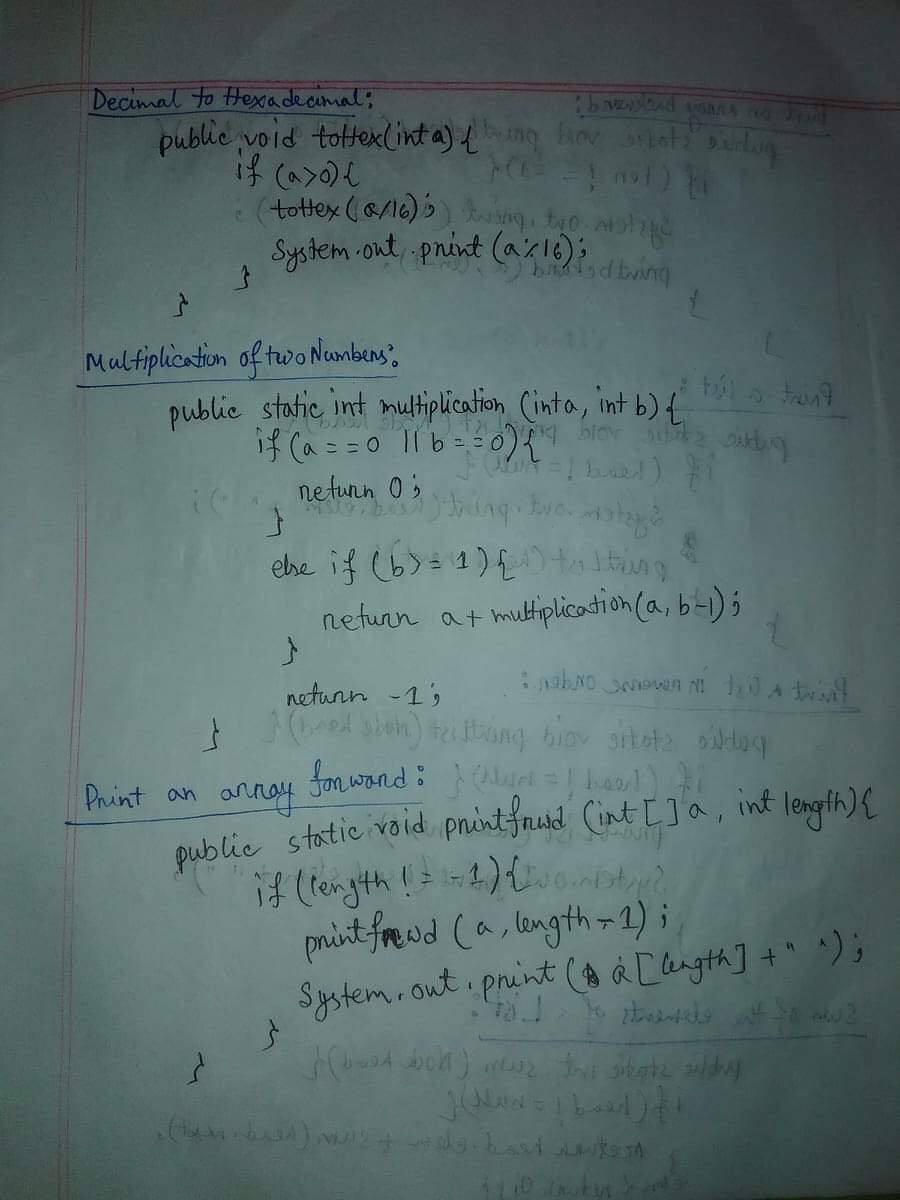 Decimal to Hexadecimal:
public void toHex(int a) {
if (a>0){
toHex(a/16);
System.out.print (a%16);
}
}
Multiplication of two Numbers:
public static int multiplication (int a, int b) {
if (a==0 || b==0){
return 0;
}
else if (b>=1){
return a+ multiplication(a, b-1);
}
return -1;
}
Print an array forward:
public static void printfrwd (int []a, int length){
if (length != -1){
printfrwd (a, length-1);
System.out.print (a[length] +" ");
}
}